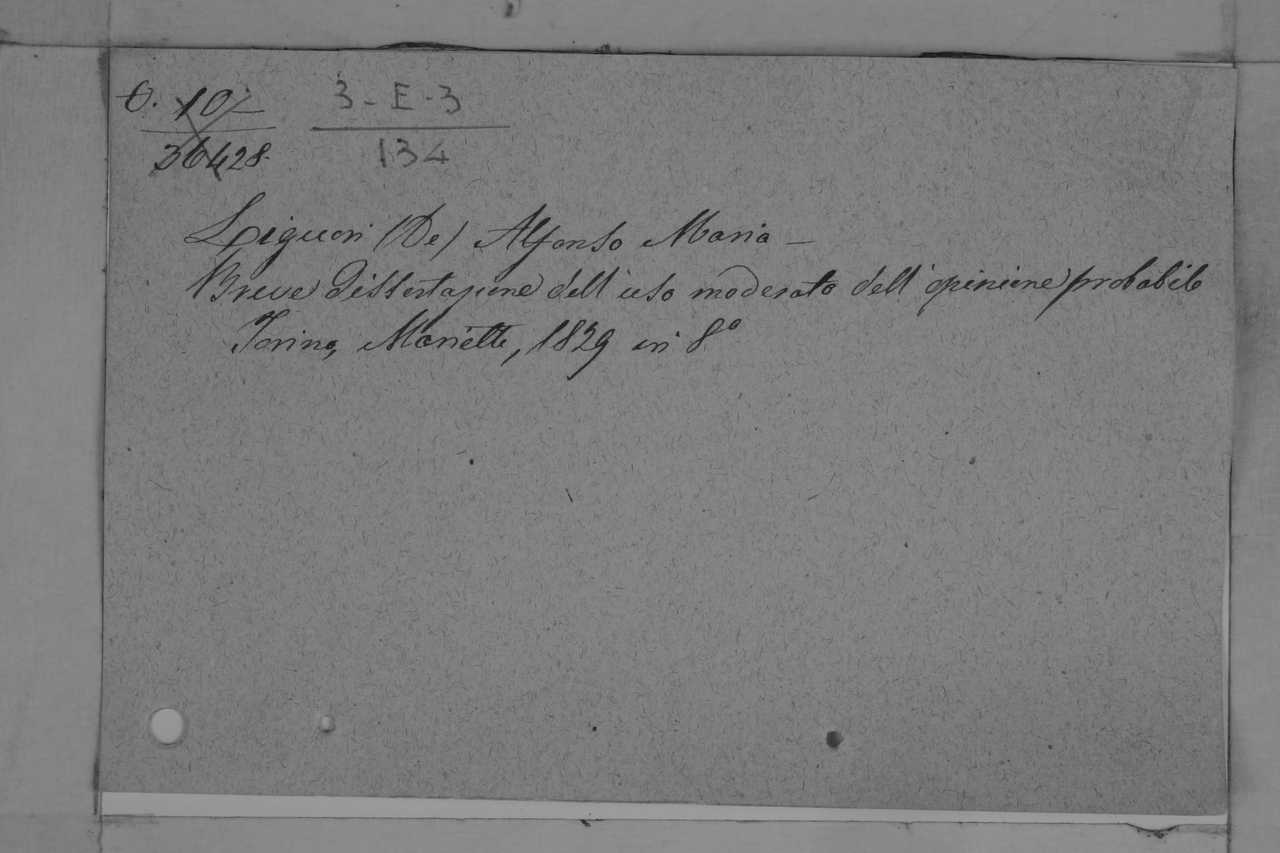 O. 10 3-E-3
36428 134
Liguori (De) Alfonso Maria –
Breve dissertazione dell'uso moderato dell'opinione probabile
Torino, Marietti, 1829 in 8°